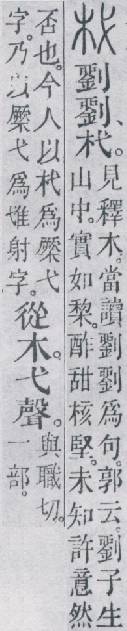 杙 劉、劉杙。見釋木。當讀劉劉爲句。郭云。劉子生
山中。實如棃。酢甜核堅。未知許意然
否也。今人以杙爲橜弋
字。乃以橜弋爲隿射字。從木。弋聲。與職切。
一部。